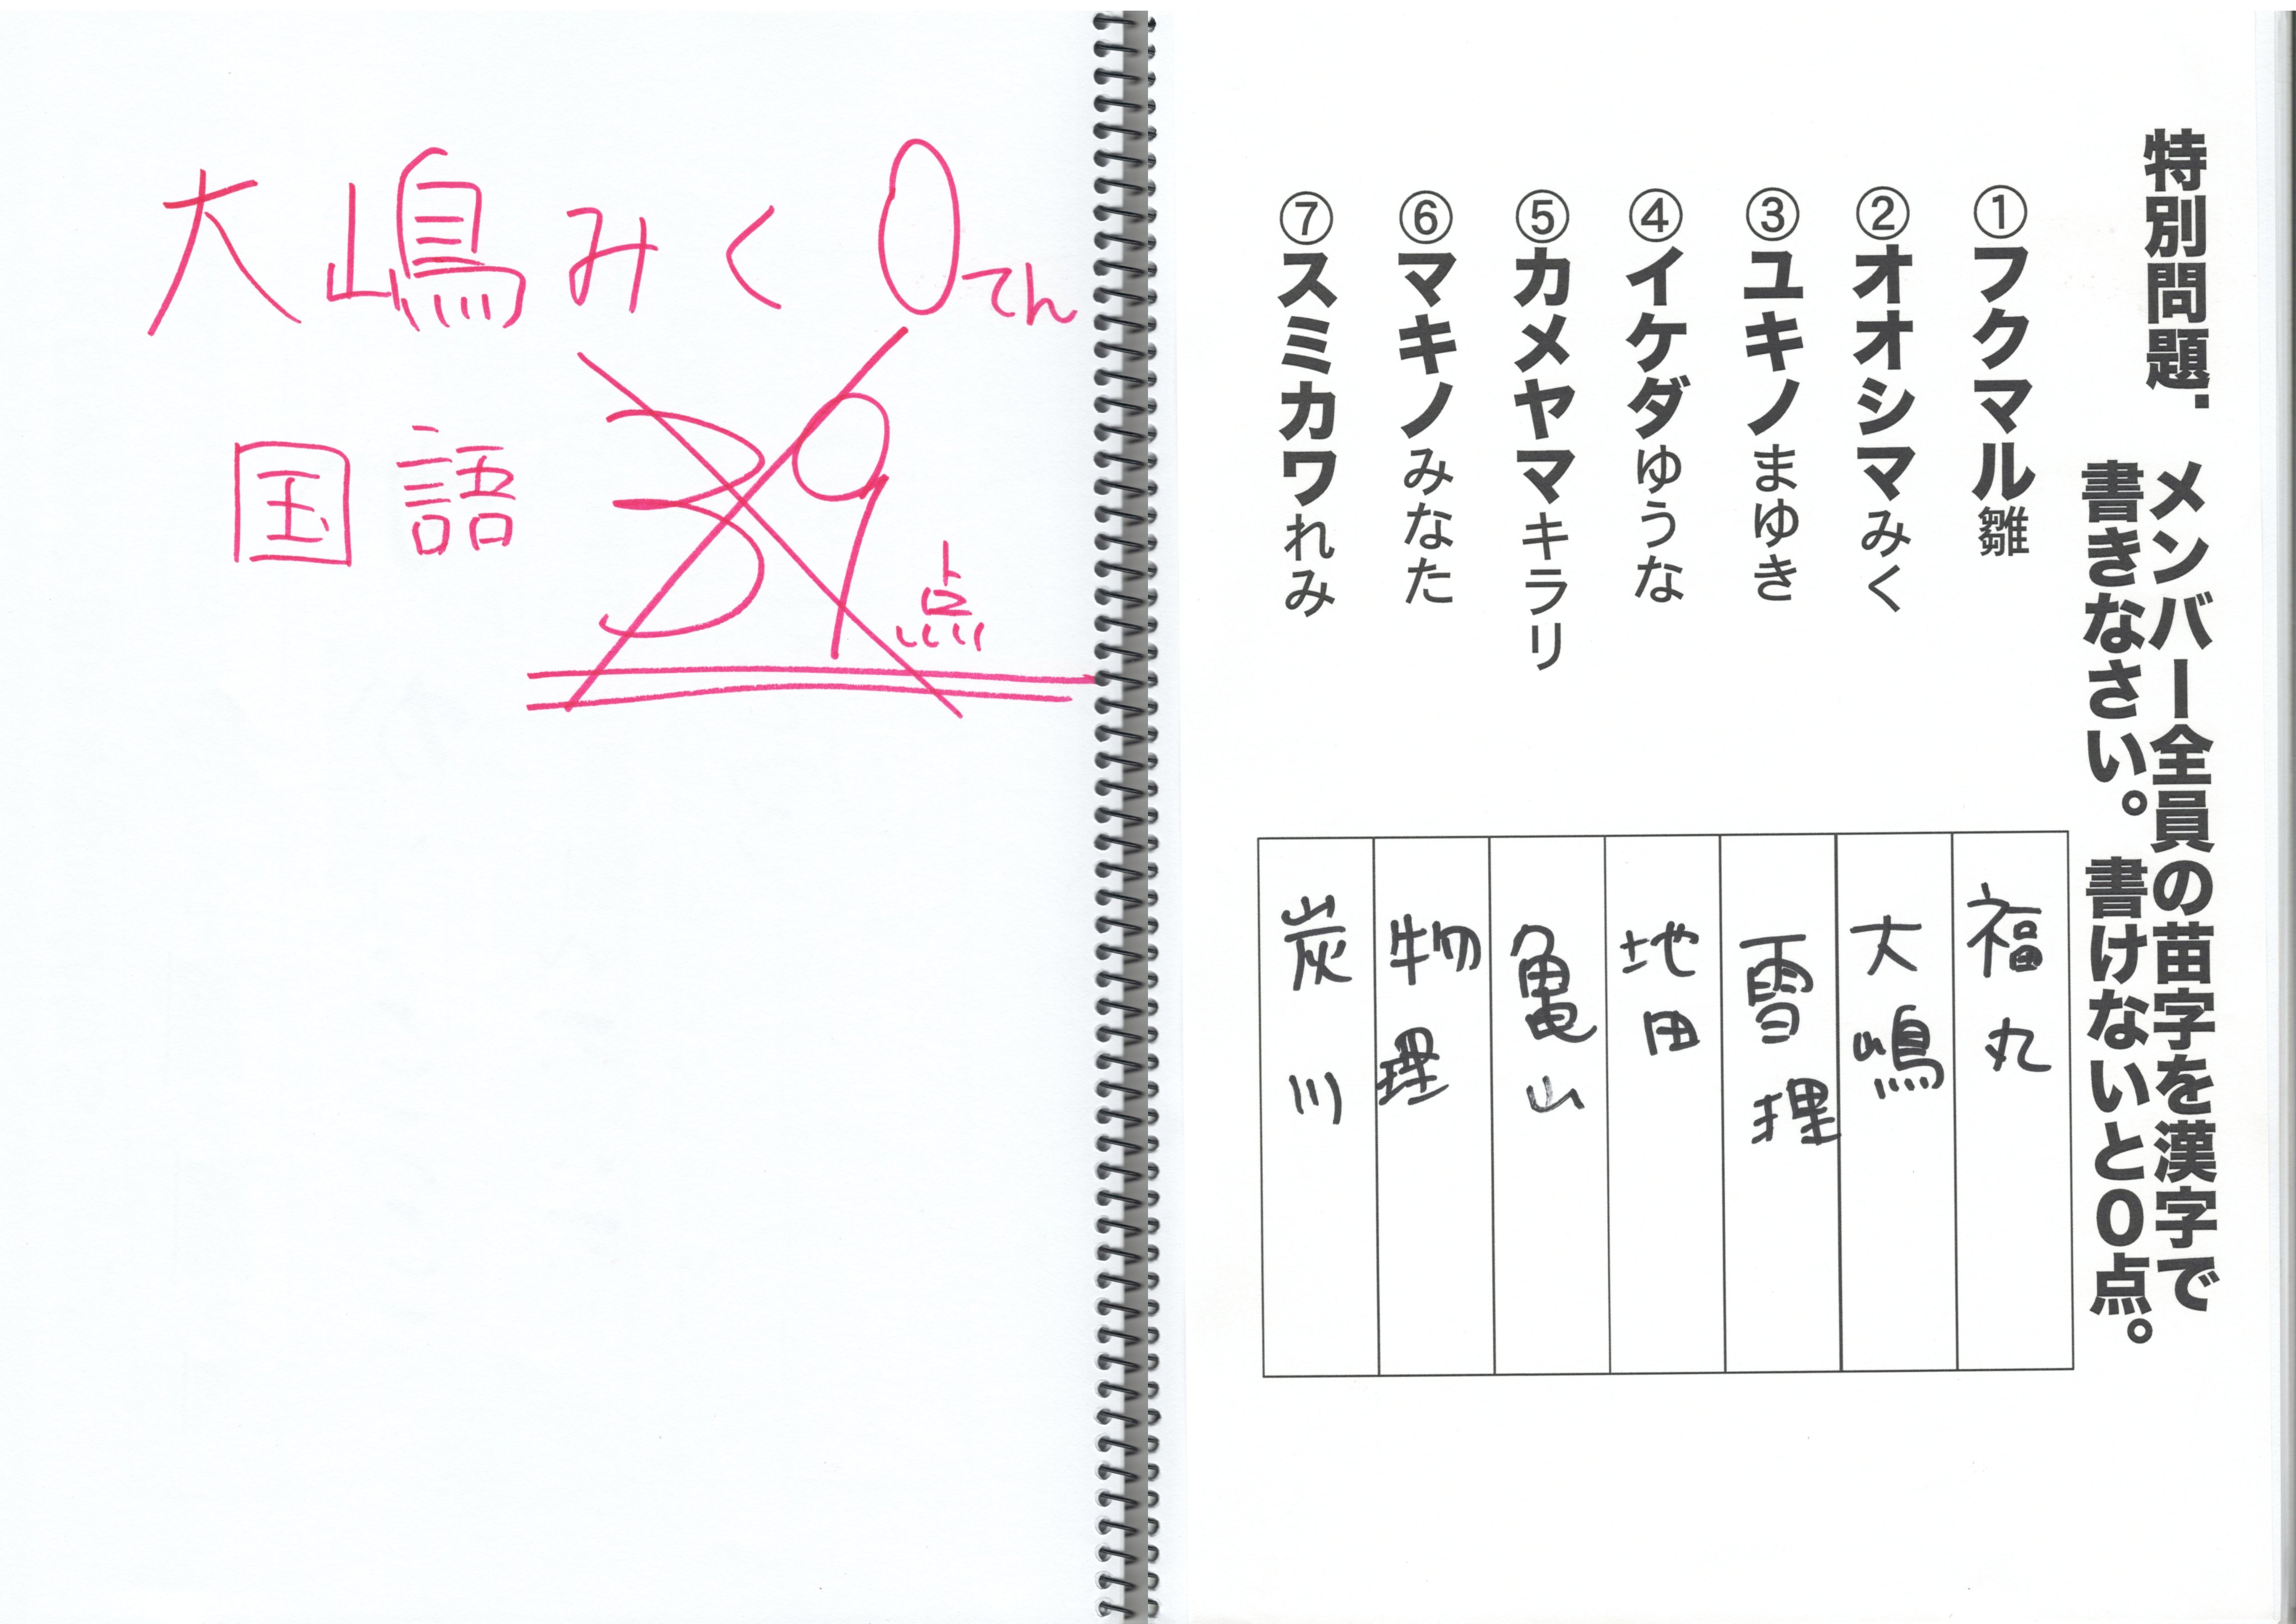 大嶋みく 0てん
国語 39点
特別問題. メンバー全員の苗字を漢字で
書きなさい。 書けないと0点。
①フクマル雛
②オオシマみく
③ユキノまゆき
④イケダゆうな
⑤カメヤマキラリ
⑥マキノみなた
⑦スミカワれみ
福丸
大嶋
雪理
地田
亀山
物理
炭川